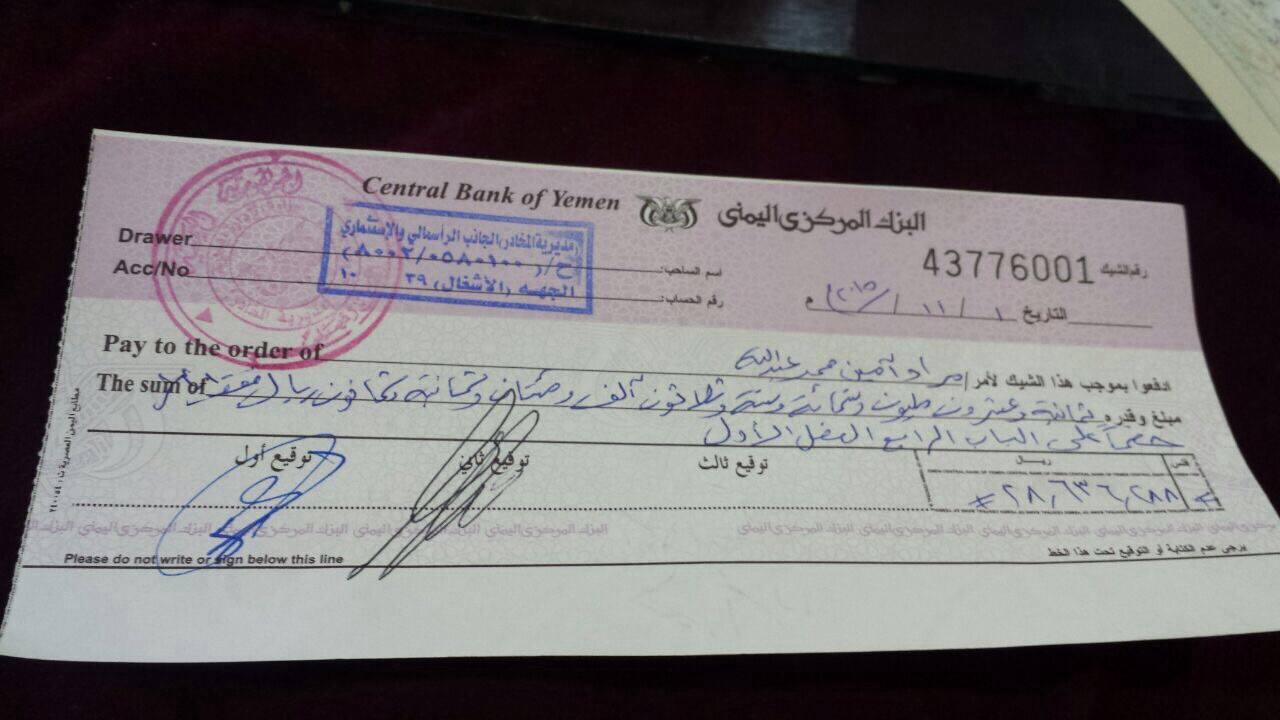 Central Bank of Yemen البنك المركزي اليمني
رقم الشيك 43776001
Drawer اسم الساحب:
Acc/No رقم الحساب:
مديرية المخادر/الجانب الرأسمالي والإستثماري
ح/(٨٠٠٢/٠٥٨٠١٠٠)
الجهه (الأشغال) ٣٩ ١٠
التاريخ ١ / ١١ / ٢٠١٥ م
Pay to the order of
ادفعوا بموجب هذا الشيك لأمر/ مراد أمين محمد عبدالله
The sum of
مبلغ وقدره ثمانية وعشرون مليون وستمائة وستة وثلاثون ألف ومئتان وثمانية وثمانون ريال فقط
خصماً على الباب الرابع الفصل الأول
توقيع أول توقيع ثاني توقيع ثالث
ريال فلس
# ٢٨,٦٣٦,٢٨٨
البنك المركزي اليمني البنك المركزي اليمني البنك المركزي اليمني البنك المركزي اليمني
Please do not write or sign below this line
يرجى عدم الكتابة أو التوقيع تحت هذا الخط